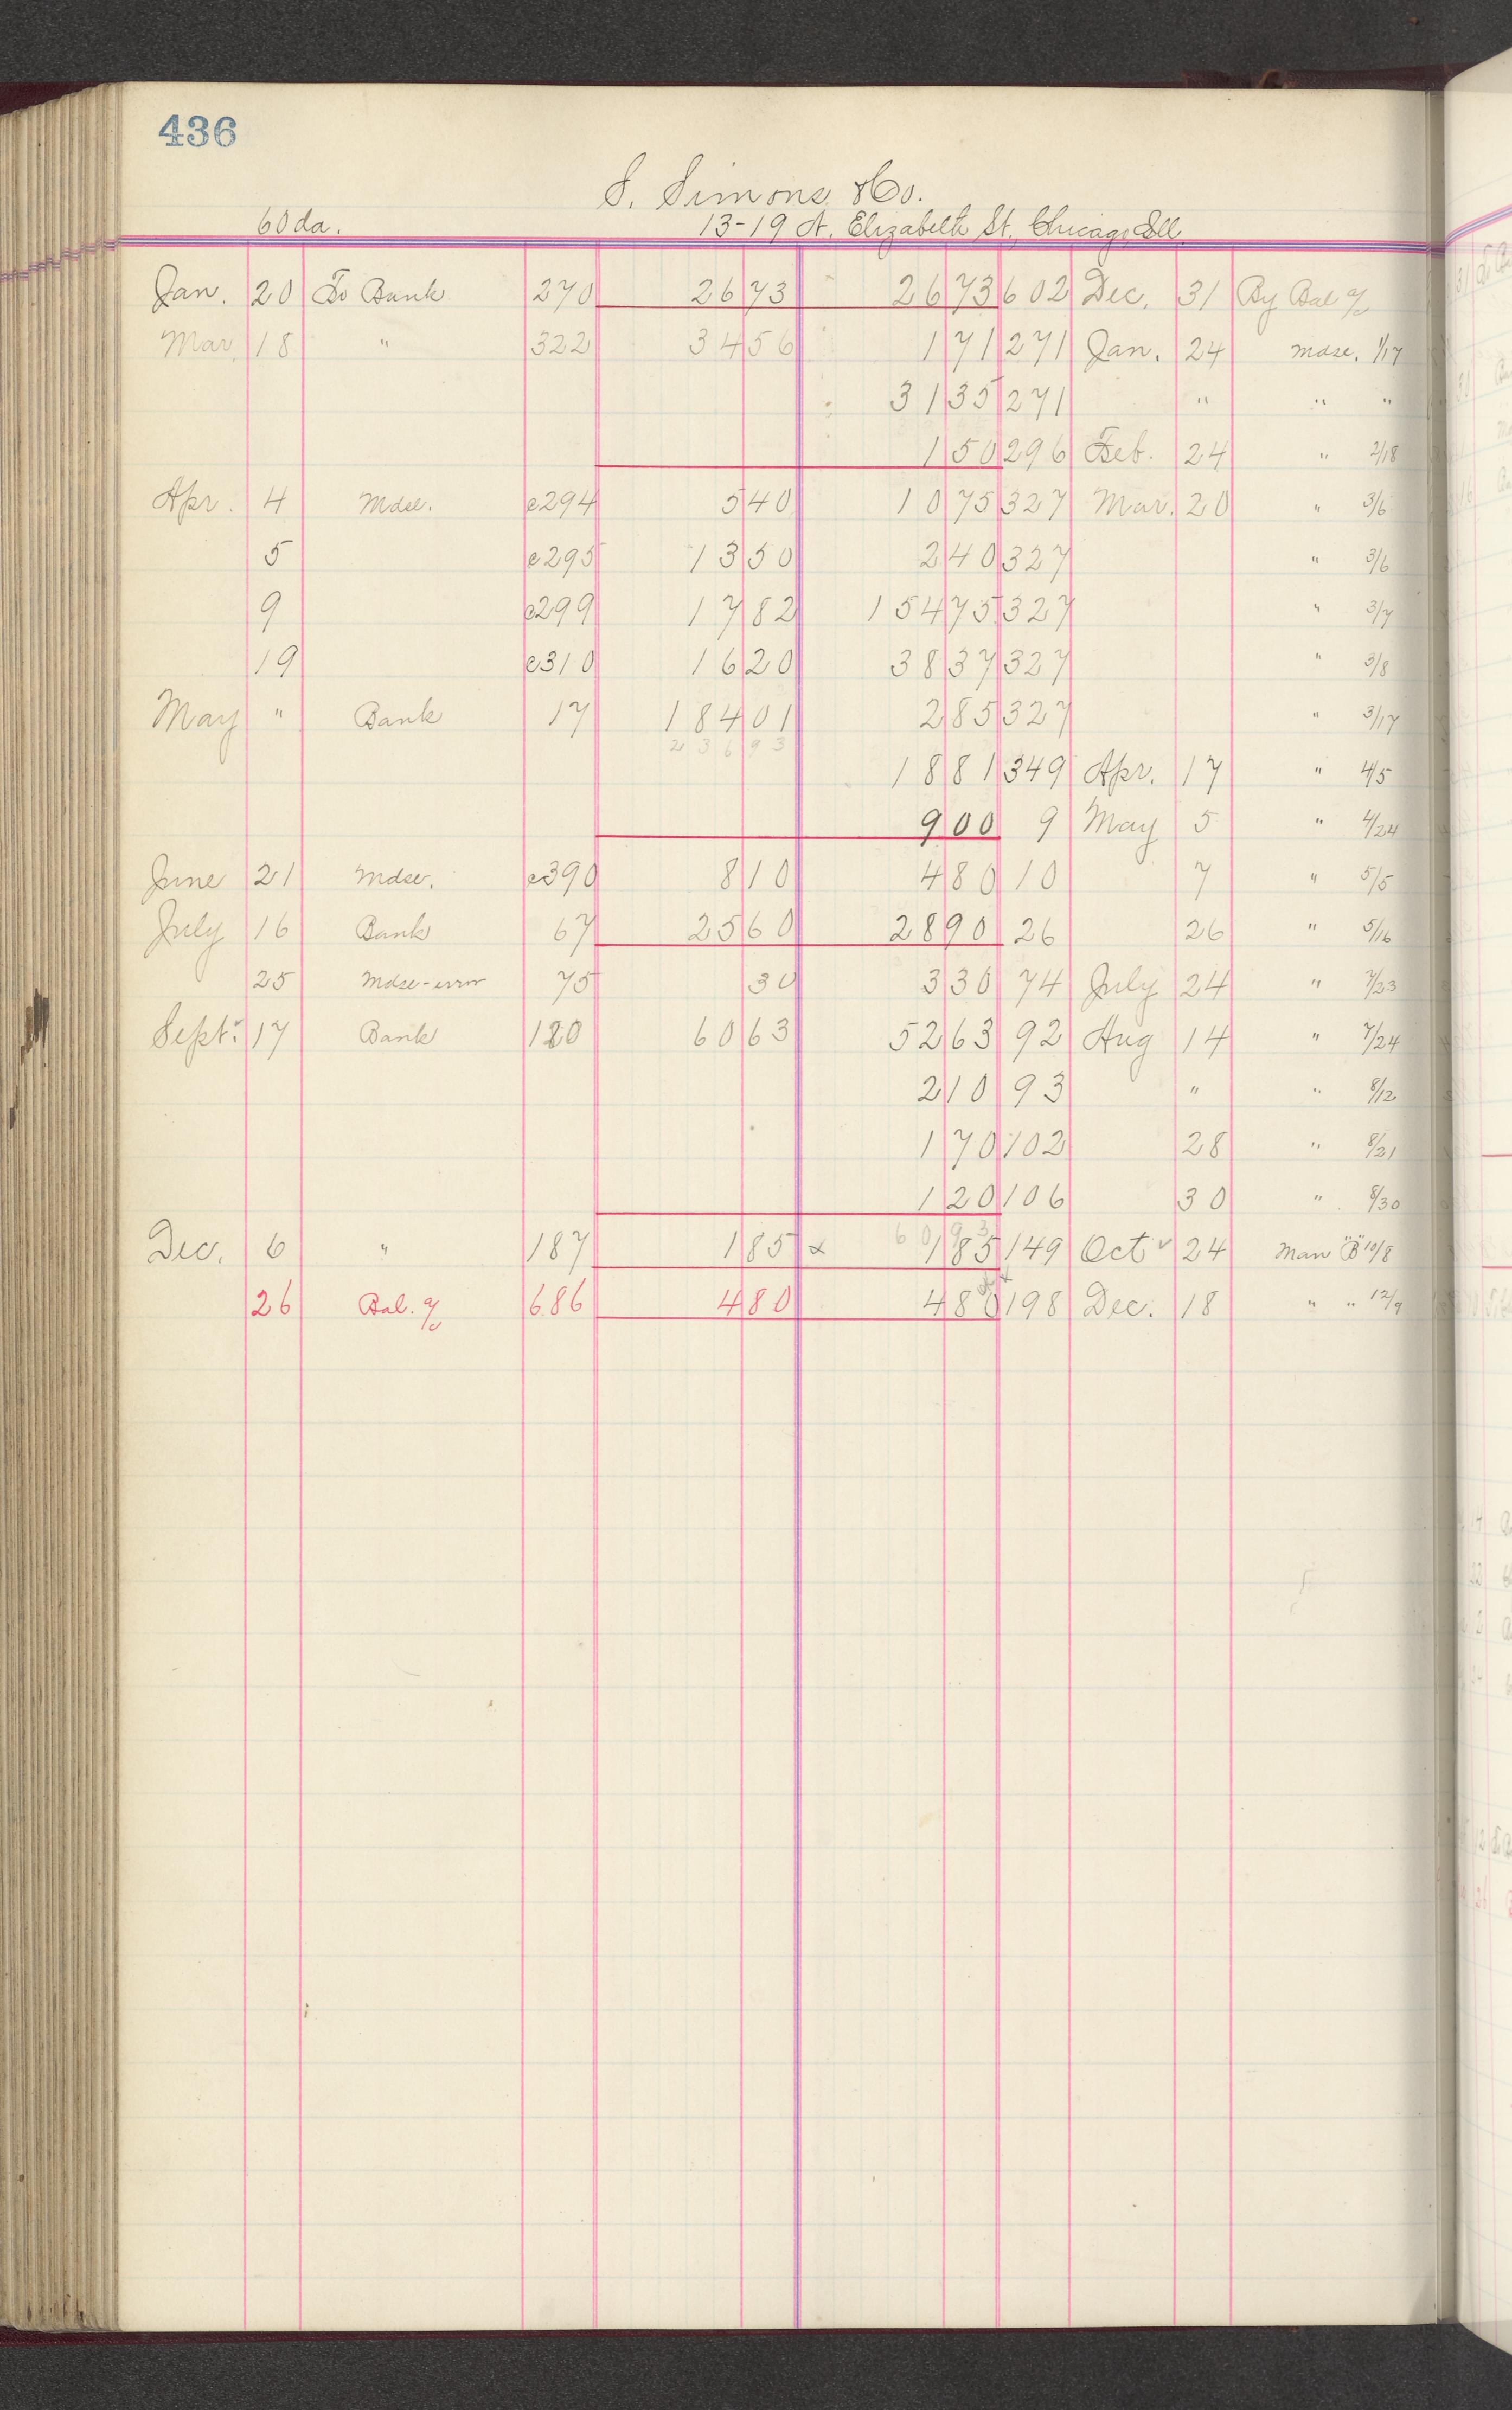 436
S. Simons & Co.
60 da. 13-19 N. Elizabeth St. Chicago Ill.
Jan. 20 To Bank 270 26 73 26 73 602 Dec. 31 By Bal a/c
Mar. 18 " 322 34 56 1 71 271 Jan. 24 Mdse. 1/17
31 35 271 " " "
1 50 296 Feb. 24 " 2/18
Apr. 4 Mdse. c294 5 40 10 75 327 Mar. 20 " 3/6
5 c295 13 50 2 40 327 " 3/6
9 c299 17 82 154 75 327 " 3/7
19 c310 16 20 38 37 327 " 3/8
May " Bank 17 184 01 2 85 327 " 3/17
236 93
18 81 349 Apr. 17 " 4/5
9 00 9 May 5 " 4/24
June 21 Mdse. c390 8 10 4 80 10 7 " 5/5
July 16 Bank 67 25 60 28 90 26 26 " 5/16
25 Mdse-error 75 30 3 30 74 July 24 " 7/23
Sept. 17 Bank 120 60 63 52 63 92 Aug 14 " 7/24
2 10 93 " " 8/12
1 70 102 28 " 8/21
1 20 106 30 " 8/30
60 93
Dec. 6 " 187 1 85 x 1 85 149 Oct 24 Man "B" 10/8
26 Bal. a/c 686 4 80 4 80 198 Dec. 18 " " 12/9